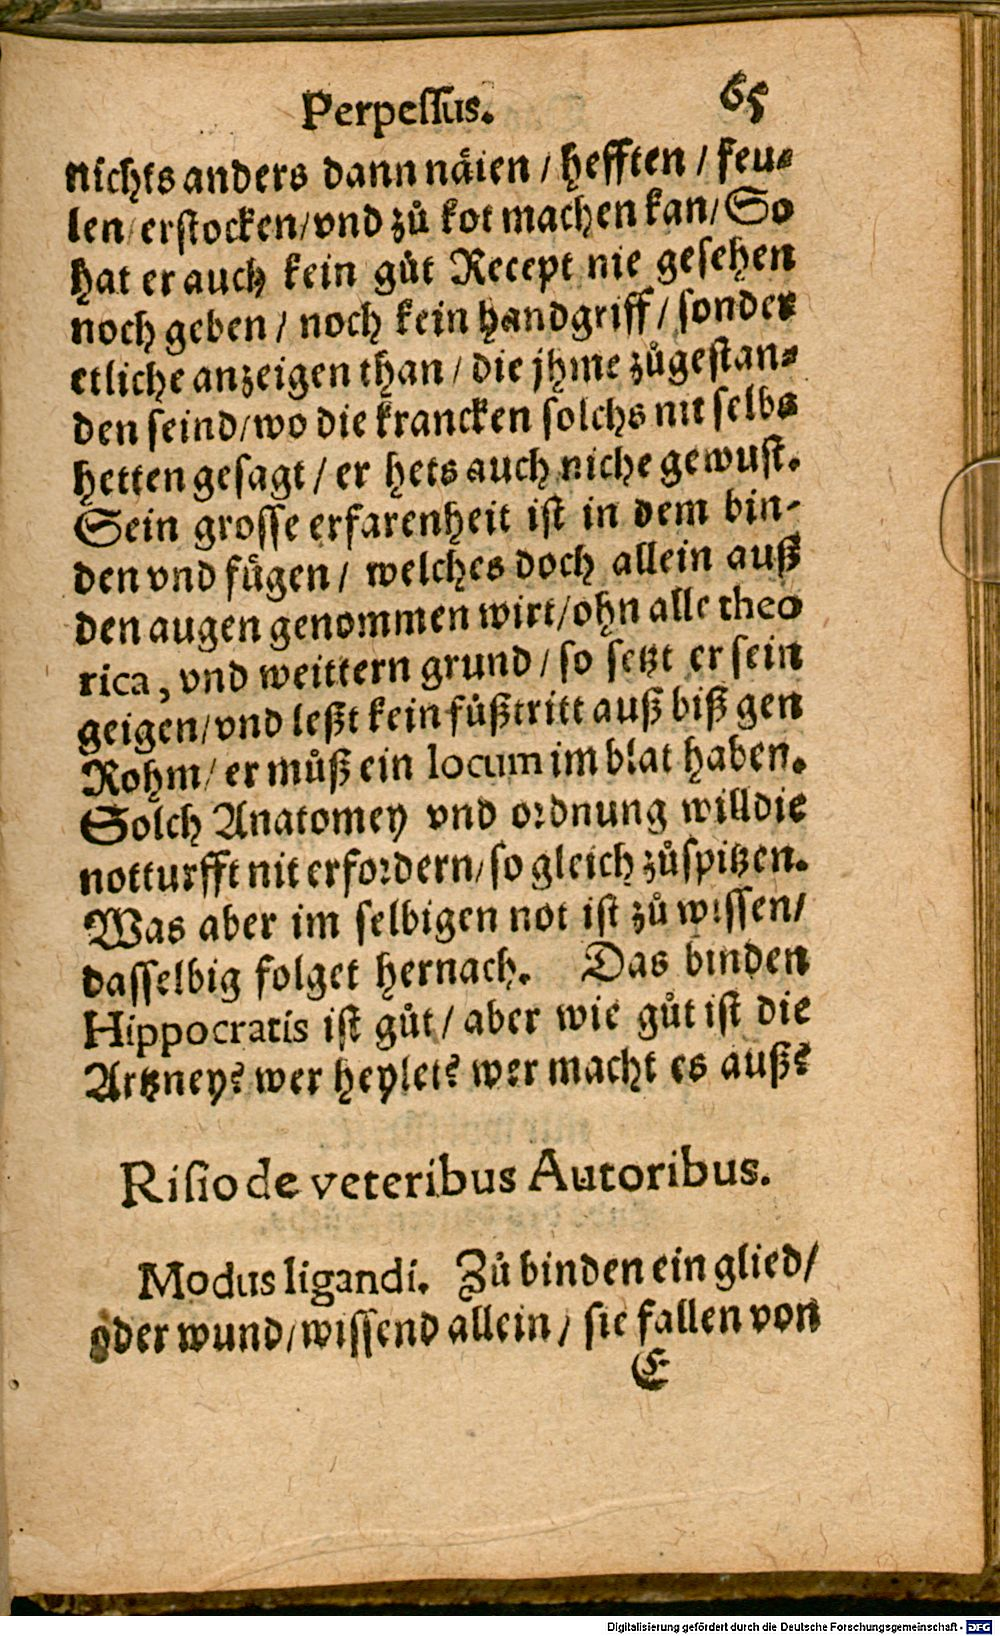 Perpeſſus. 65
nichts anders dann näien / hefften / feu⸗
len / erſtocken / vnd zů kot machen kan / So
hat er auch kein gůt Recept nie geſehen
noch geben / noch kein handgriff / ſonder
etliche anzeigen than / die jhme zůgeſtan⸗
den ſeind / wo die krancken ſolchs nit ſelbs
hetten geſagt / er hets auch niche gewuſt.
Sein groſſe erfarenheit iſt in dem bin-
den vnd fügen / welches doch allein auß
den augen genommen wirt / ohn alle theo
rica, vnd weittern grund / ſo ſetzt er ſein
geigen / vnd leßt kein fůßtritt auß biß gen
Rohm / er můß ein locum im blat haben.
Solch Anatomey vnd ordnung will die
notturfft nit erfordern / ſo gleich zůſpitzen.
Was aber im ſelbigen not iſt zů wiſſen /
daſſelbig folget hernach. Das binden
Hippocratis iſt gůt / aber wie gůt iſt die
Artzney? wer heylet? wer macht es auß?
Riſio de veteribus Autoribus.
Modus ligandi. Zů binden ein glied /
oder wund / wiſſend allein / ſie fallen von
E
Digitalisierung gefördert durch die Deutsche Forschungsgemeinschaft - DFG